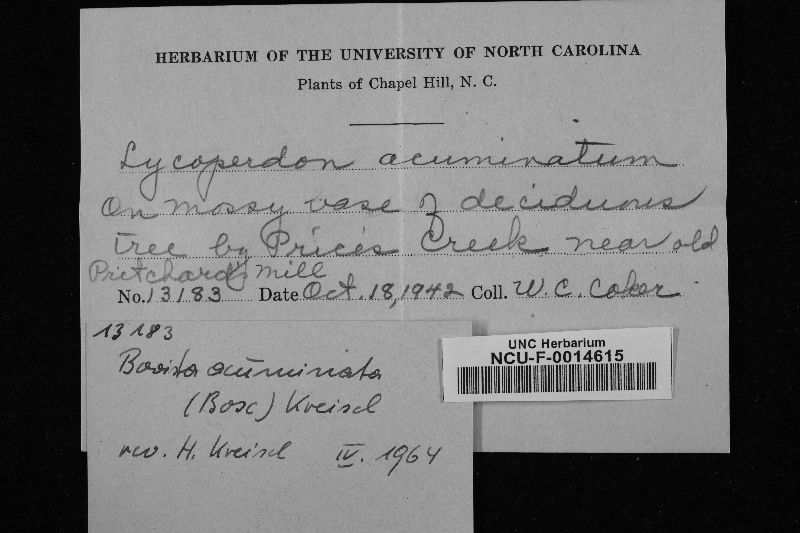 HERBARIUM OF THE UNIVERSITY OF NORTH CAROLINA
Plants of Chapel Hill, N. C.
Lycoperdon acuminatum
On mossy base of deciduous
tree by Price's Creek near old
Pritchard's Mill
No. 13183 Date Oct. 18, 1942 Coll. W. C. Coker
13183
Bovista acuminata
(Bosc) Kreisel
rev. H. Kreisel IV. 1964
UNC Herbarium
NCU-F-0014615